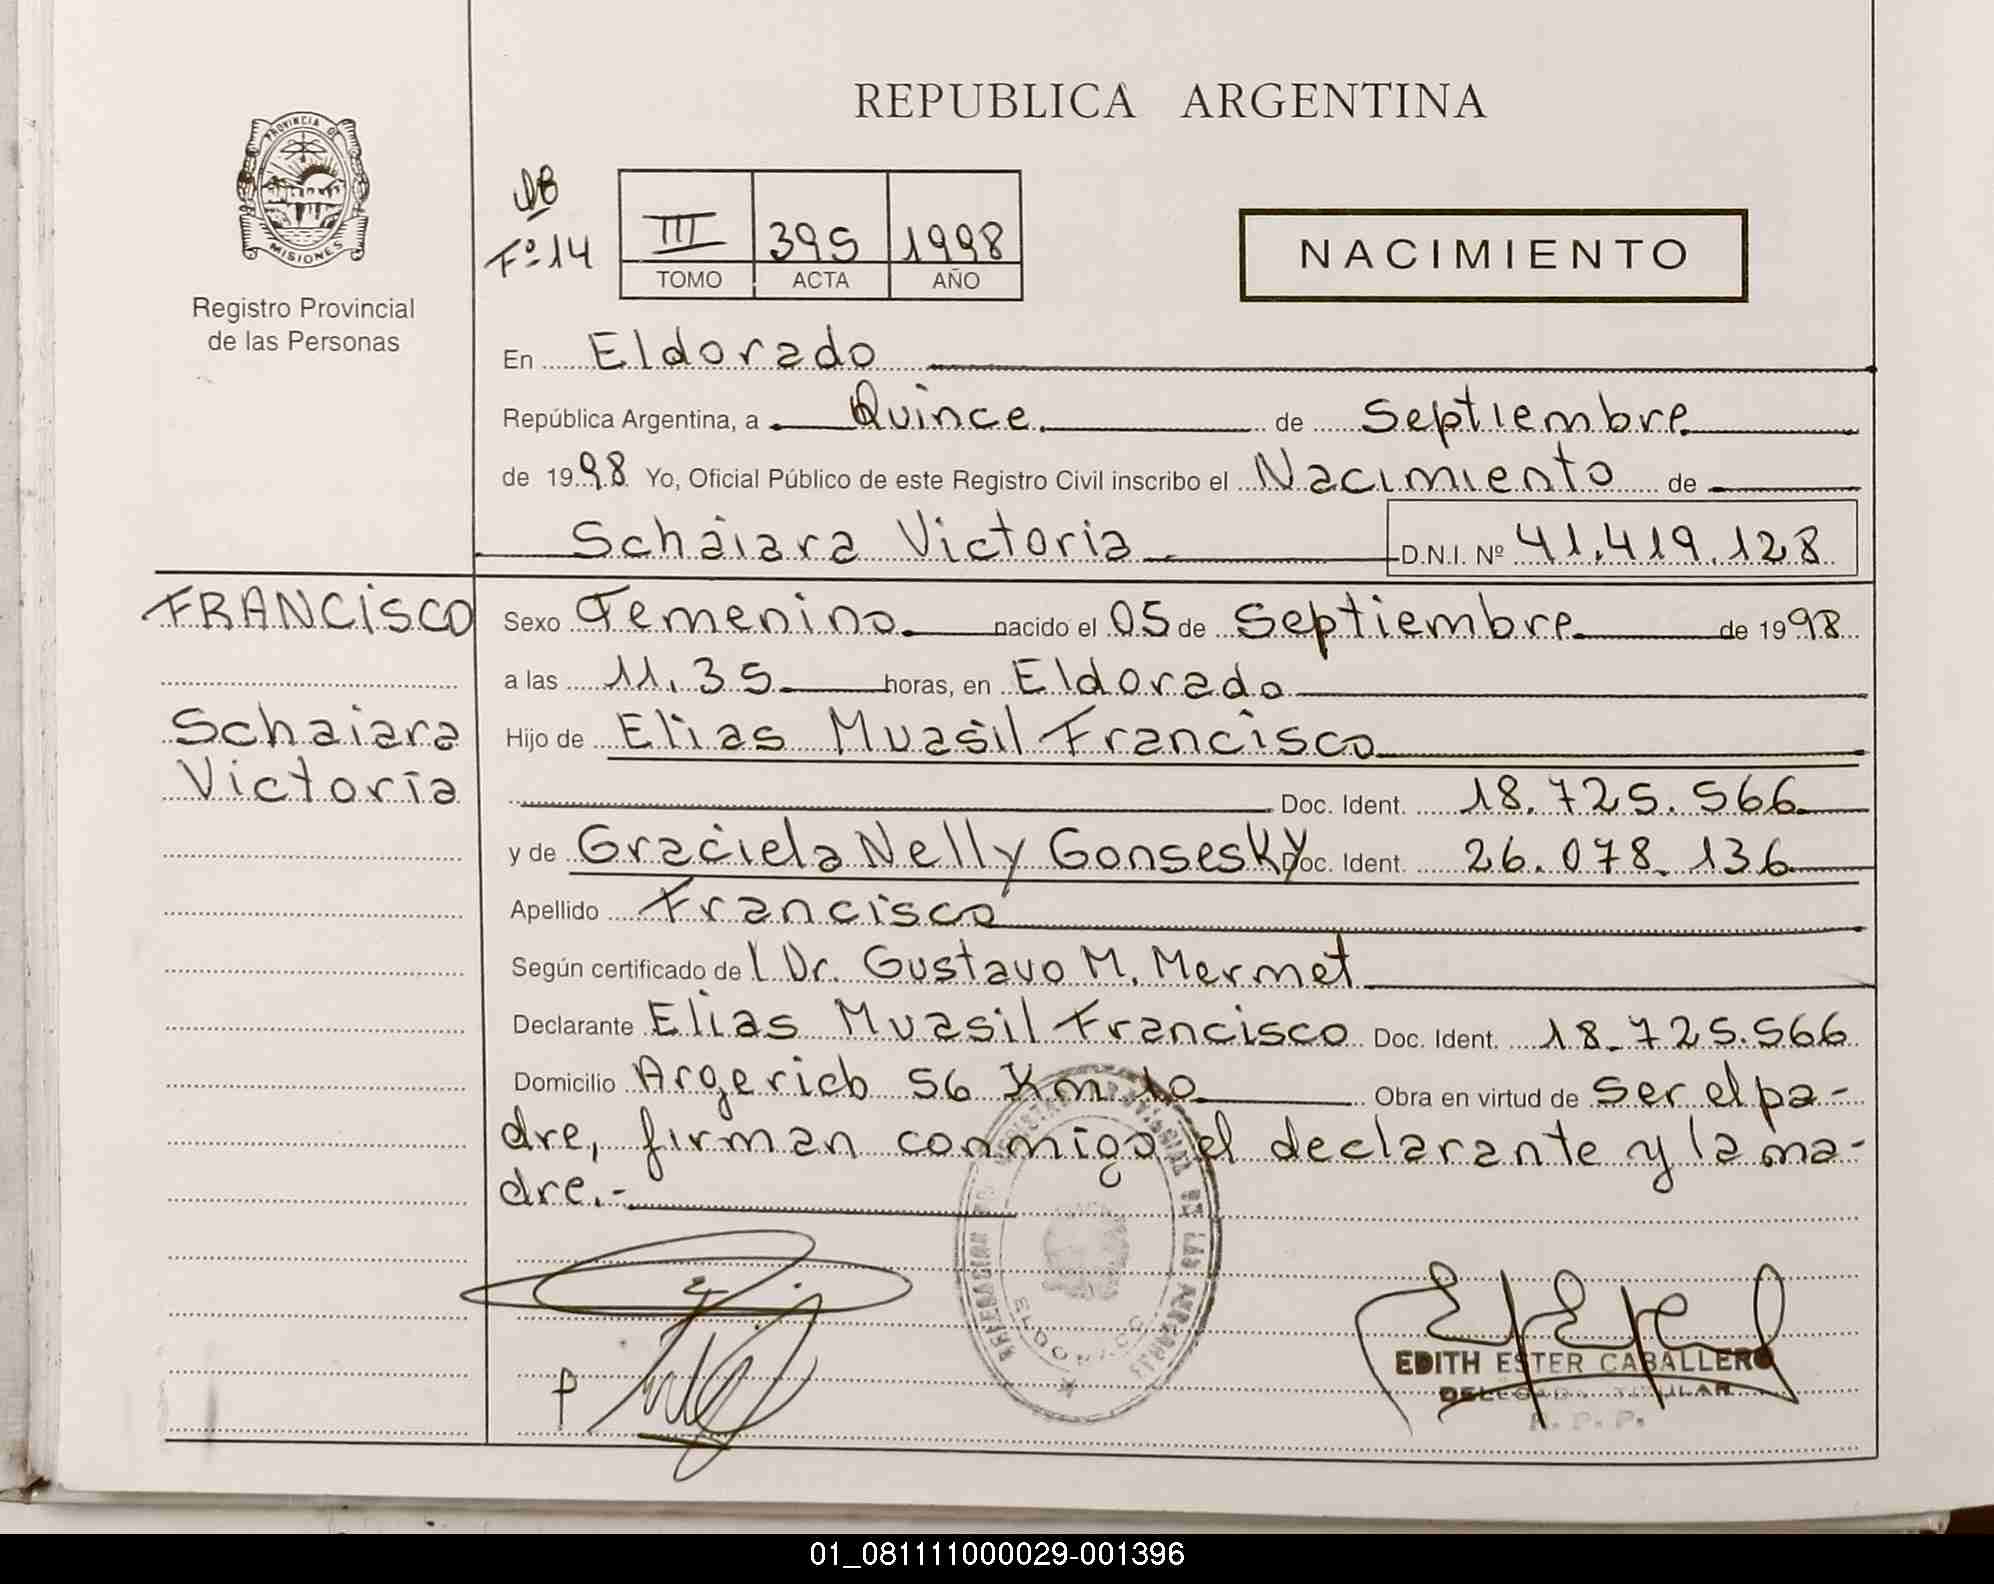 REPUBLICA ARGENTINA
PROVINCIA DE
MISIONES
Registro Provincial
de las Personas
Fº 14
III 395 1998
TOMO ACTA AÑO
NACIMIENTO
En Eldorado
República Argentina, a Quince de Septiembre
de 1998 Yo, Oficial Público de este Registro Civil inscribo el Nacimiento de
Schaiara Victoria D.N.I. Nº 41.419.128
FRANCISCO
Schaiara
Victoria
Sexo Femenino nacido el 05 de Septiembre de 1998
a las 11.35 horas, en Eldorado
Hijo de Elias Muasil Francisco
Doc. Ident. 18.725.566
y de Graciela Nelly Gonsesky Doc. Ident. 26.078.136
Apellido Francisco
Según certificado del Dr. Gustavo M. Mermet
Declarante Elias Muasil Francisco Doc. Ident. 18.725.566
Domicilio Argerich 56 Km 10 Obra en virtud de ser el pa-
dre, firman conmigo el declarante y la ma-
dre.-
ELDORADO
EDITH ESTER CABALLERO
DELEGADA TITULAR
R. P. P.
01_081111000029-001396